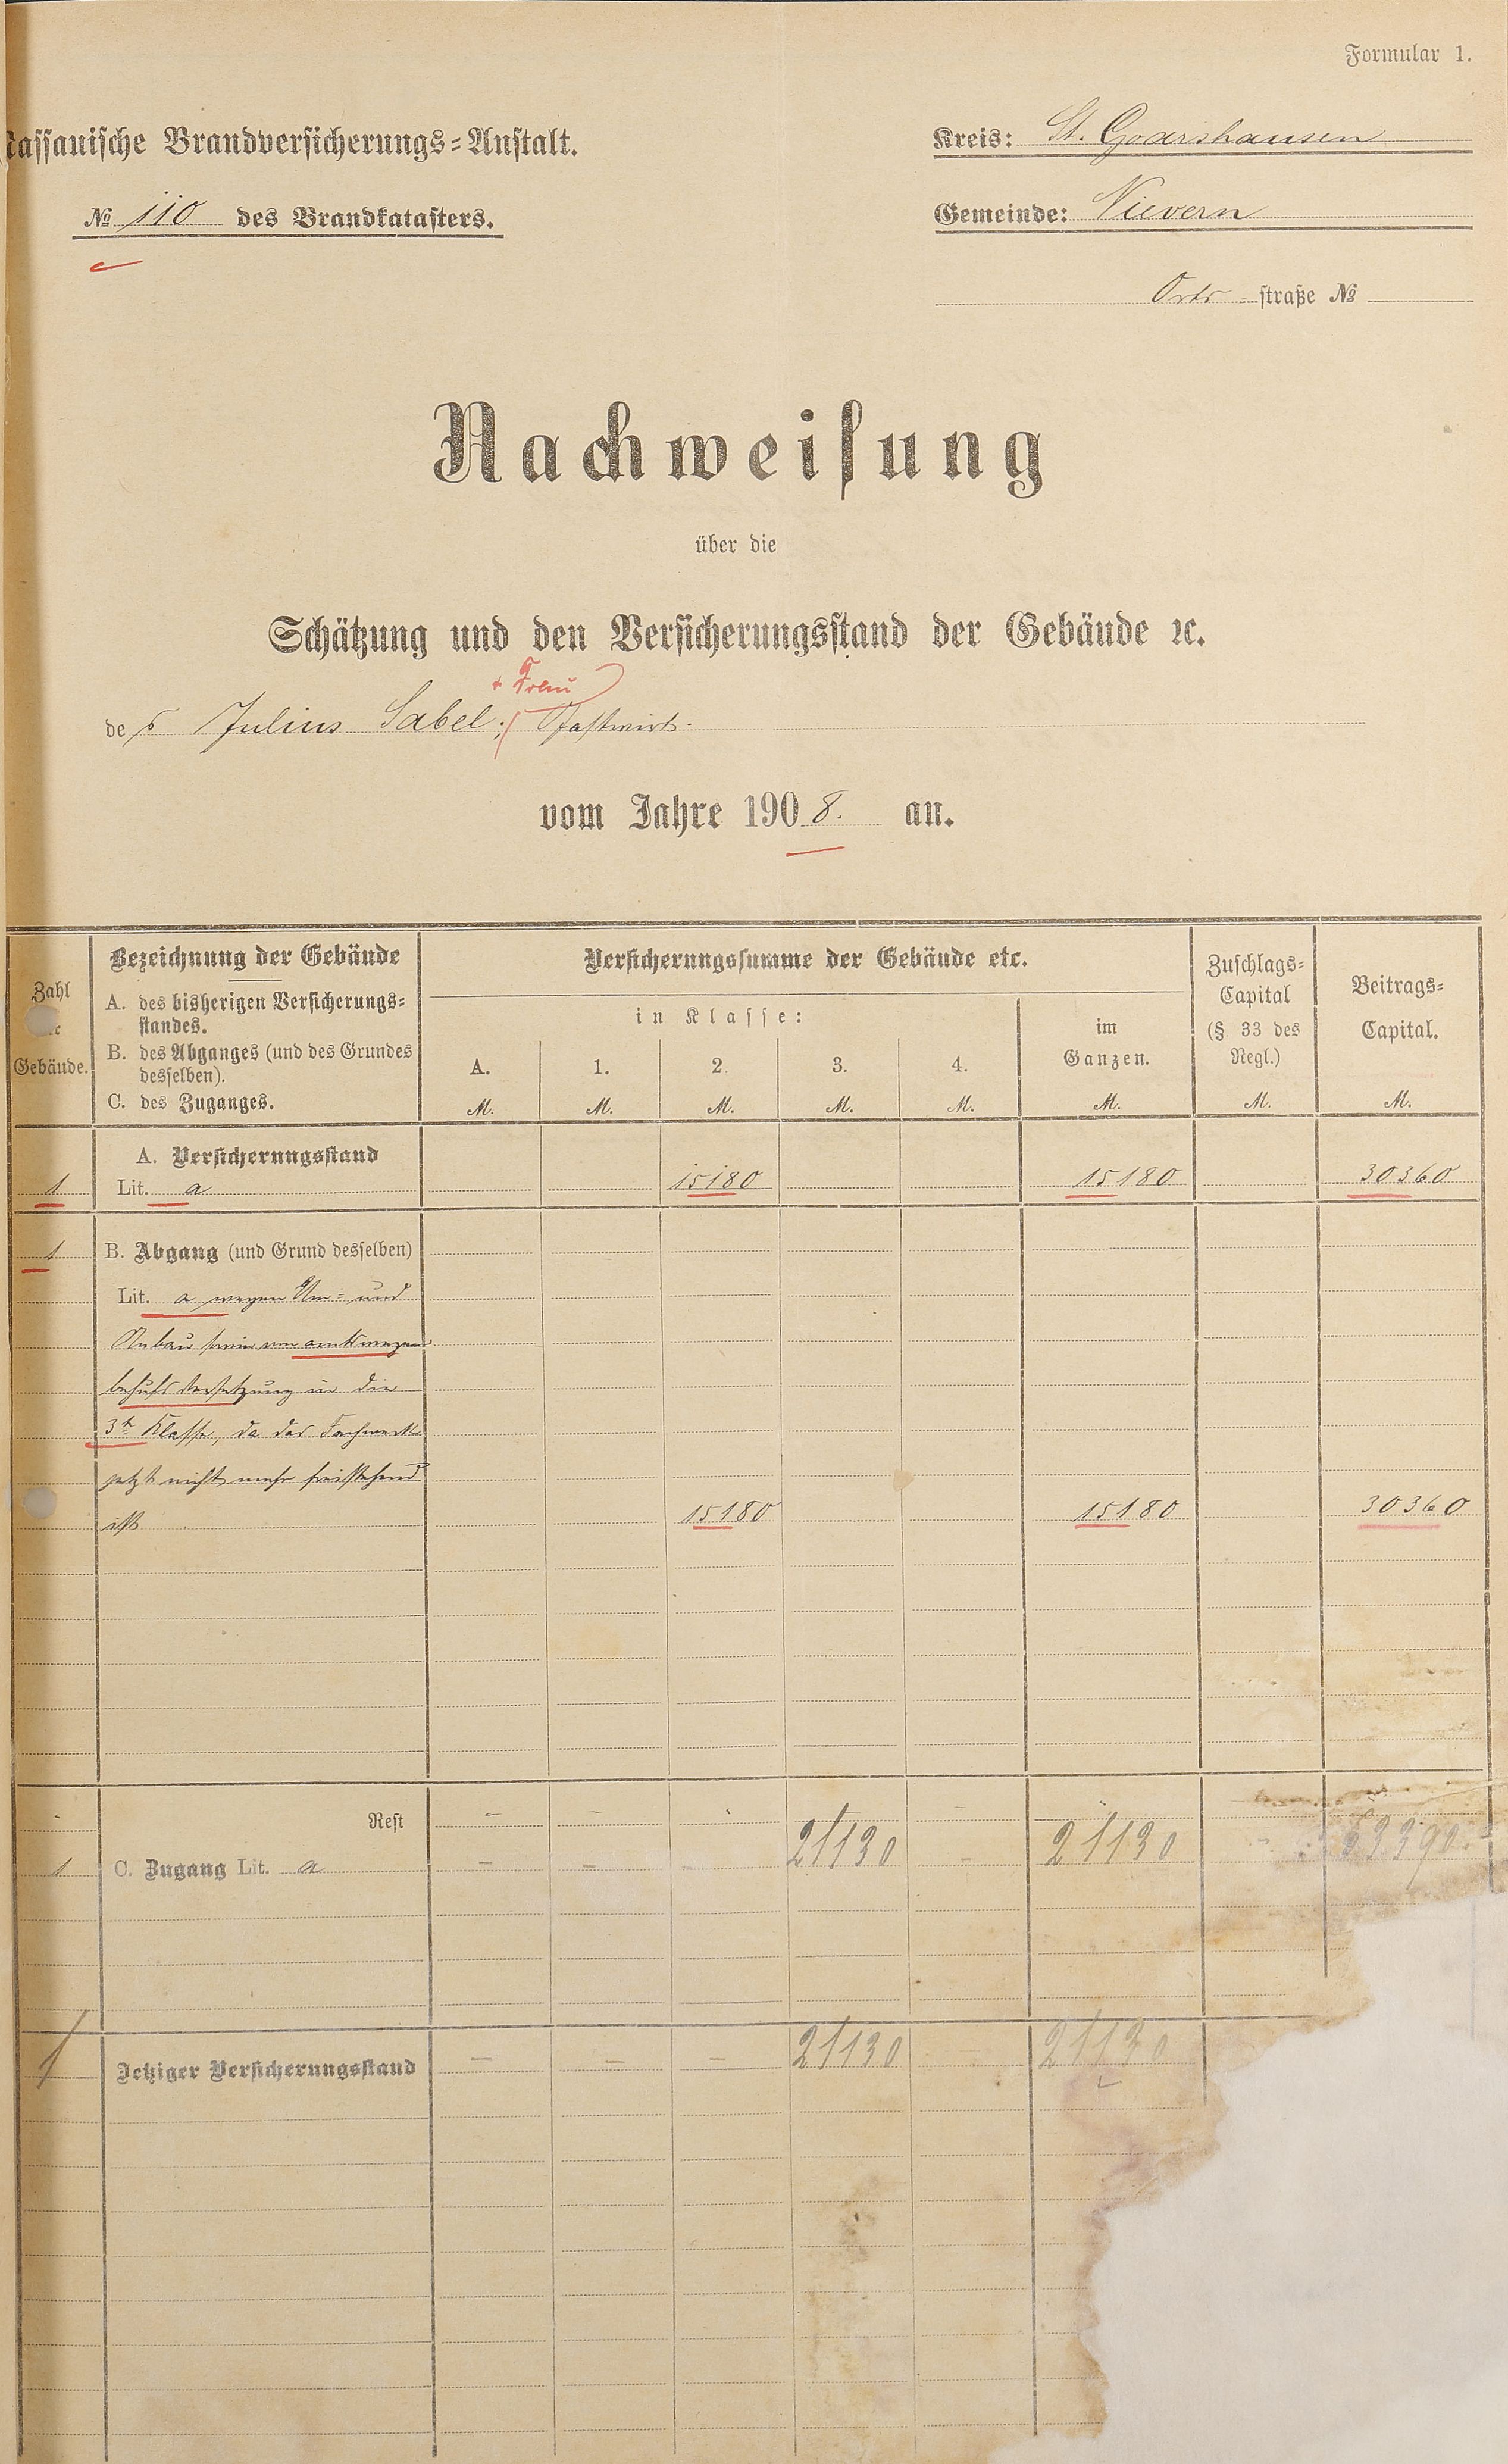 Formular 1.
Nassauische Brandversicherungs-Anstalt.
Kreis: St. Goarshausen
№ 110 des Brandkatasters.
Gemeinde: Nievern
Orts-straße №
Nachweisung
über die
Schätzung und den Versicherungsstand der Gebäude ꝛc.
+ Frau
des Julius Sabel, Gastwirt.
vom Jahre 1908. an.
Zahl
Gebäude.
Bezeichnung der Gebäude
A. des bisherigen Versicherungs-
standes.
B. des Abganges (und des Grundes
desselben).
C. des Zuganges.
Versicherungssumme der Gebäude etc.
in Klasse:
A. 1. 2. 3. 4.
M. M. M. M. M.
im
Ganzen.
M.
Zuschlags-
Capital
(§. 33 des
Regl.)
M.
Beitrags-
Capital.
M.
A. Versicherungsstand
1 Lit. a 15180 15180 30360
1 B. Abgang (und Grund desselben)
Lit. a wegen Um- und
Anbau sowie von amtswegen
behufs Versetzung in die
3te Klasse, da das Fachwerk
jetzt nicht mehr freistehend
ist 15180 15180 30360
- Rest - - - -
1 C. Zugang Lit. a - - - 21130 - 21130
1 Jetziger Versicherungsstand - - - 21130 21130